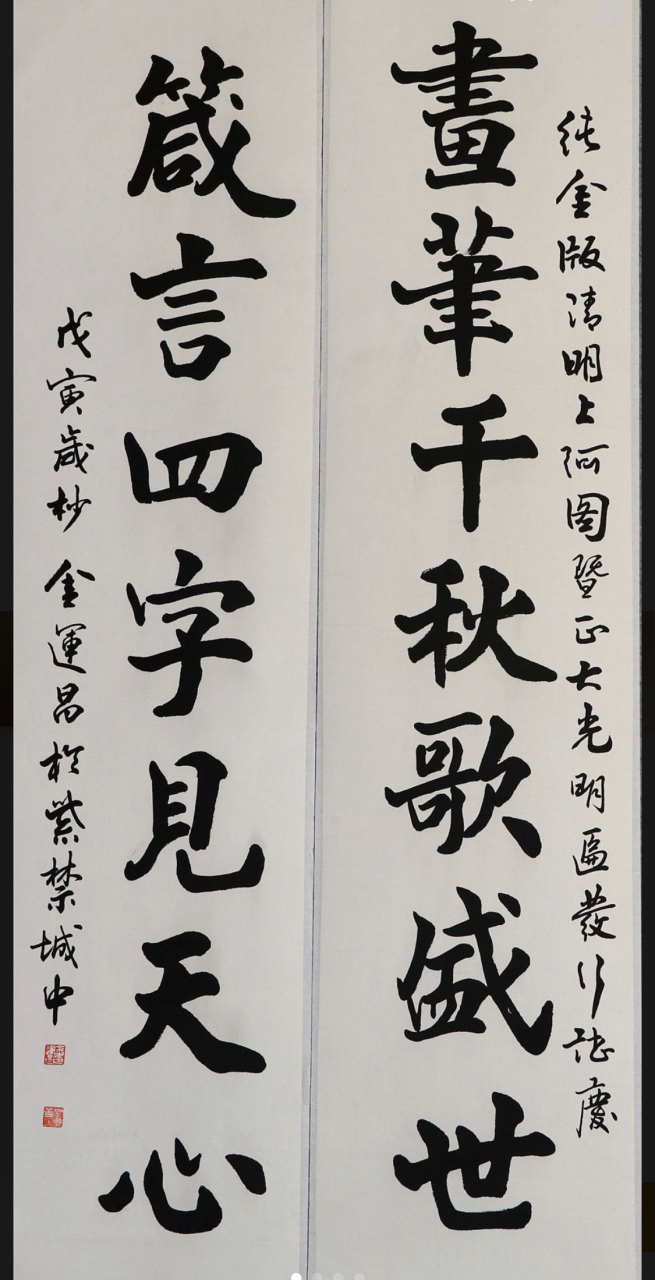 純金版清明上河图暨正大光明匾發行誌慶
畫筆千秋歌盛世
箴言四字見天心
戊寅歲杪 金運昌於紫禁城中